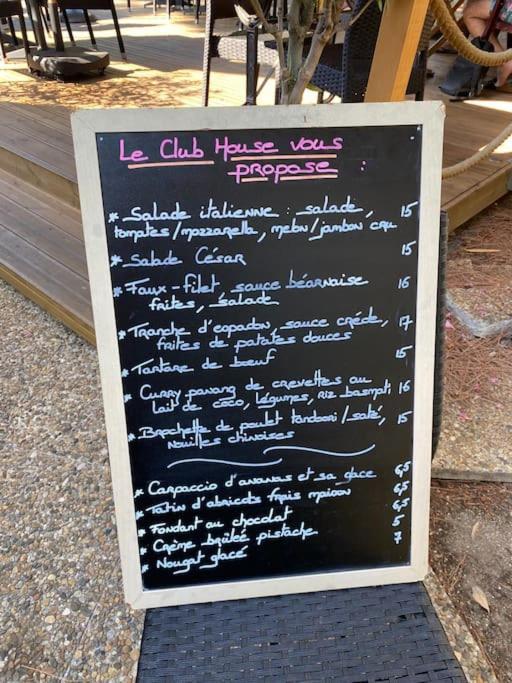 Le Club House vous
propose :
* Salade italienne : salade, 15
tomates/mozzarella, melon/jambon cru
* Salade César 15
* Faux-filet, sauce béarnaise 16
frites, salade
* Tranche d'espadon, sauce créole, 17
frites de patates douces
* Tartare de bœuf 15
* Curry panang de crevettes au 16
lait de coco, légumes, riz basmati
* Brochette de poulet tandoori/saté, 15
nouilles chinoises
* Carpaccio d'ananas et sa glace 6,5
* Tatin d'abricots frais maison 6,5
* Fondant au chocolat 6,5
* Crème brûlée pistache 5
* Nougat glacé 7